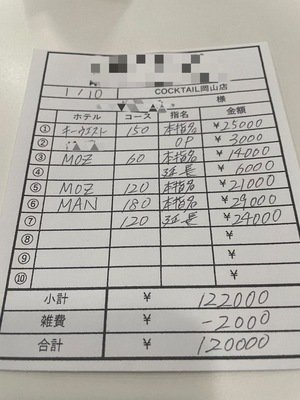 1/10 COCKTAIL岡山店
様
ホテル コース 指名 金額
① キーウエスト 150 本指名 ¥25000
② OP ¥3000
③ MOZ 60 本指名 ¥14000
④ 延長 ¥6000
⑤ MOZ 120 本指名 ¥21000
⑥ MAN 180 本指名 ¥29000
⑦ 120 延長 ¥24000
⑧ ¥
⑨ ¥
⑩ ¥
小計 ¥ 122000
雑費 ¥ -2000
合計 ¥ 120000